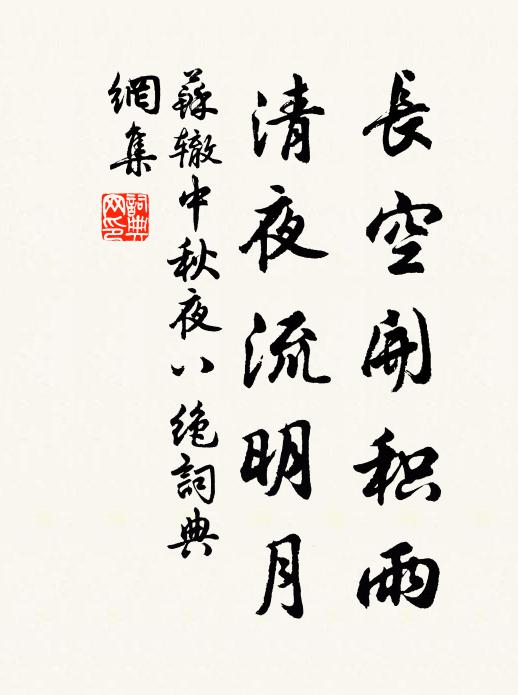 長空開积雨
清夜流明月
蘇辙中秋夜八绝詞典
網集
詞典
网印